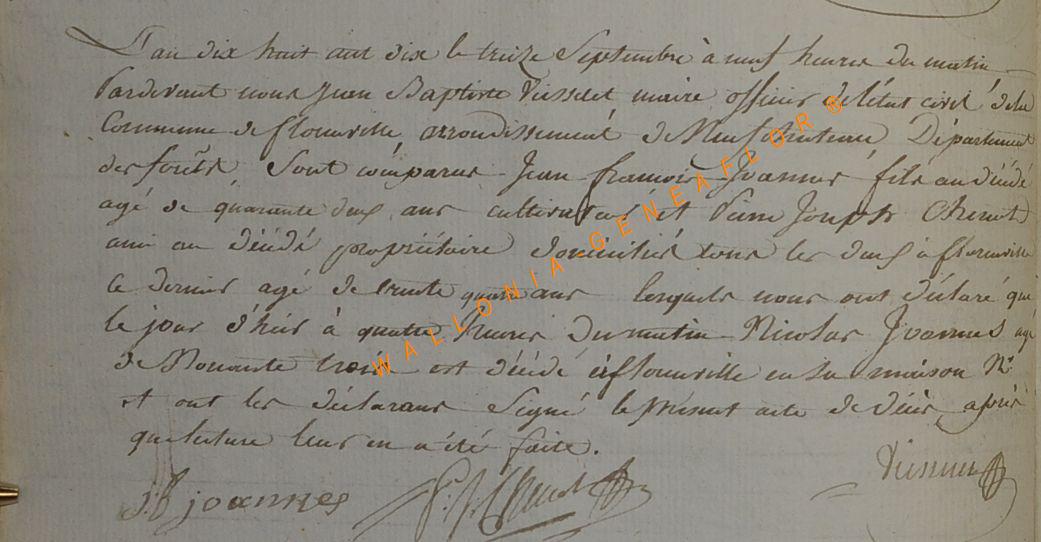 L'an dix huit cent dix le treize Septembre à neuf heures du matin
Pardevant nous Jean Baptiste maire officier de l'état civil de la
Commune de florenville arrondissement de Neufchateau Département
des forêts Sont comparus Jean françois Joannes fils au décédé
agé de quarante deux ans cultivateur et Pierre Joseph
ami au décédé propriétaire domiciliés tous les deux à florenville
le dernier agé de trente quatre ans lesquels nous ont déclaré que
le jour d'hier à quatre heures du matin Nicolas Joannes agé
de Nonante trois est décédé à florenville en sa maison N°
et ont les déclarans Signé le présent acte de décès après
que lecture leur en a été faite.
joannes
WALLONIA - GENEAFLOR ®